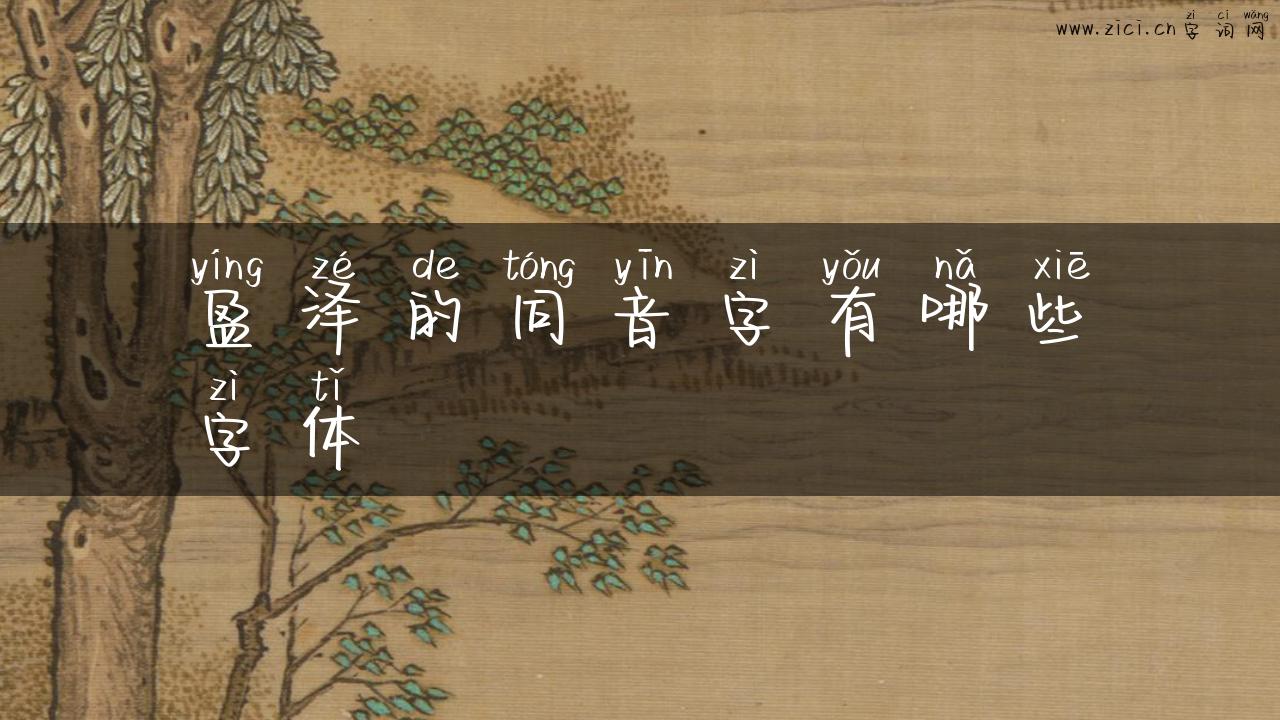 zì cí wǎng
www.zici.cn 字 词 网
yíng zé de tóng yīn zì yǒu nǎ xiē
盈 泽 的 同 音 字 有 哪 些
zì tǐ
字 体